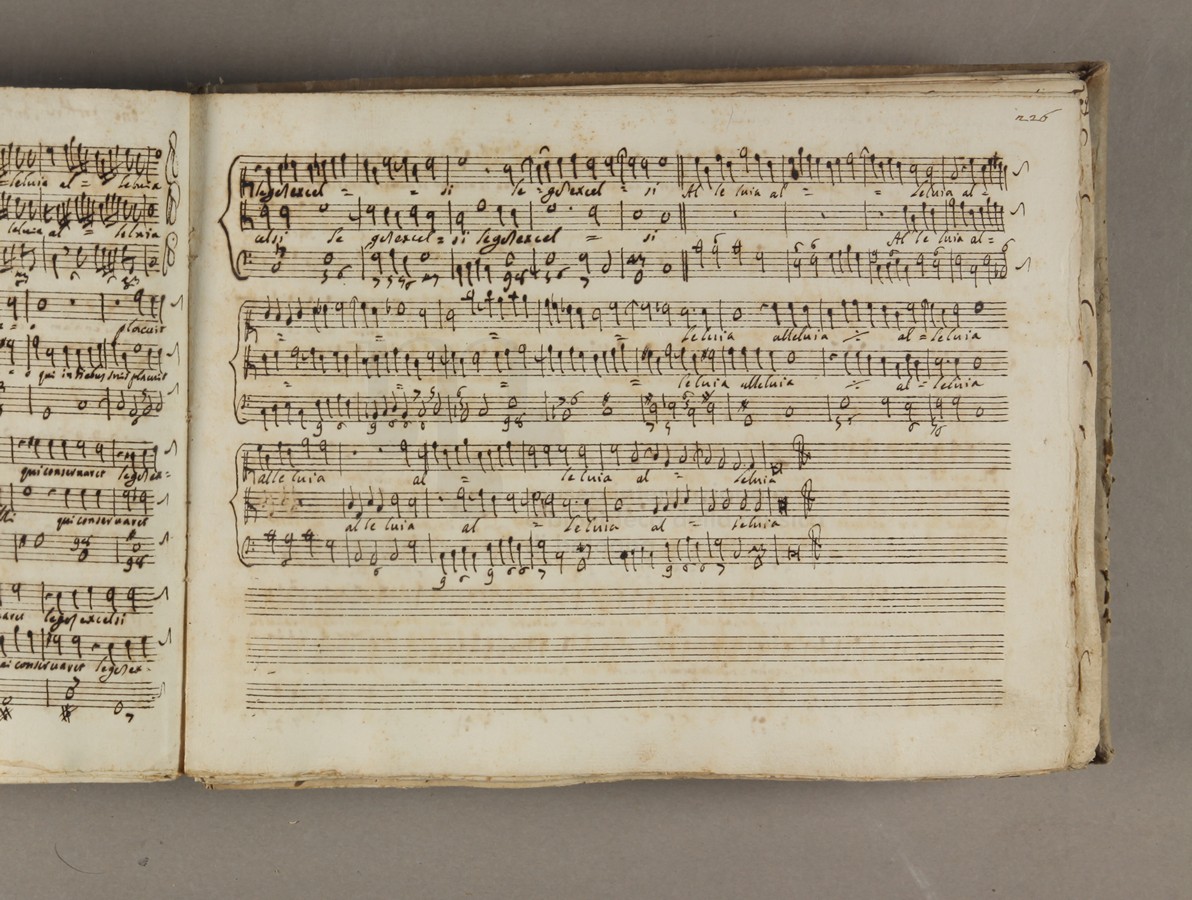 = leluia al = leluia
leluia al = leluia
placuit
qui in diebus suis placuit
qui conservaret legem ex=
qui conservaret
legem excelsi
qui conservaret legem ex-
226
legem excel = = si le = gem excel = si Al le luia al = = leluia al =
celsi le gem excel = si legem excel = si Al le luia al =
= = = = leluia alleluia ·/· al = leluia
= = = = leluia alleluia ·/· al = leluia
alle luia al = le luia al = leluia
alle luia al = leluia al = leluia